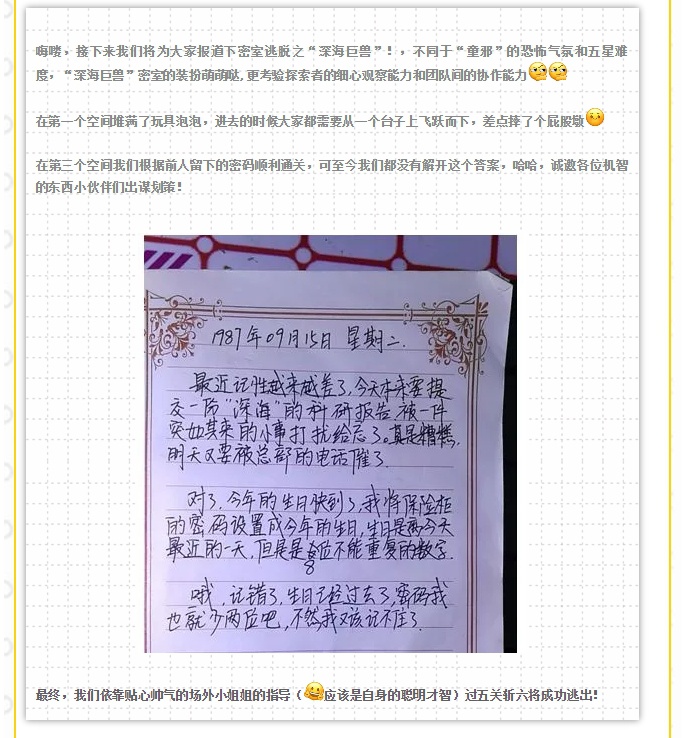 嗨喽，接下来我们将为大家报道下密室逃脱之“深海巨兽”！，不同于“童邪”的恐怖气氛和五星难
度，“深海巨兽”密室的装扮萌萌哒,更考验探索者的细心观察能力和团队间的协作能力
在第一个空间堆满了玩具泡泡，进去的时候大家都需要从一个台子上飞跃而下，差点摔了个屁股墩
在第三个空间我们根据前人留下的密码顺利通关，可至今我们都没有解开这个答案，哈哈，诚邀各位机智
的东西小伙伴们出谋划策！
1987年09月15日 星期二.
最近记性越来越差了,今天本来要提
交一份“深海”的科研报告,被一件
突如其来的小事打扰给忘了。真是糟糕,
明天又要被总部的电话催了.
对了,今年的生日快到了,我将保险柜
的密码设置成今年的生日,生日是离今天
最近的一天,但是是 位不能重复的数字.
8
哦,记错了,生日已经过去了,密码我
也就少两位吧,不然我又该记不住了.
最终，我们依靠贴心帅气的场外小姐姐的指导（应该是自身的聪明才智）过五关斩六将成功逃出！